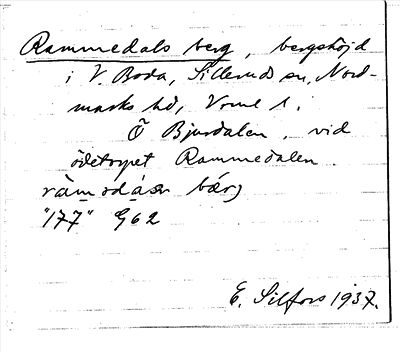 Rammedals berg, bergshöjd
i V. Boda, Sillerud sn, Nord-
marks hd, Vrml l.
Ö Bjurdalen, vid
ödetorpet Rammedalen.
bærj
"177" G62
E. Silfors 1937.